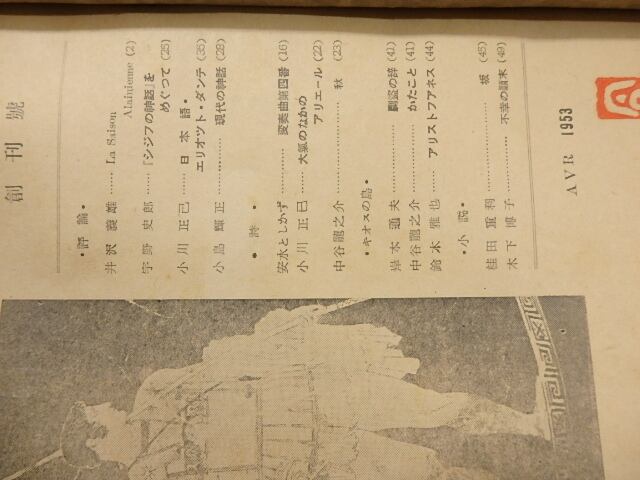 創刊號
・評論・
井沢義雄……La Saison
Alainienne (2)
宇野史郎……『シジフの神話』を
めぐつて (25)
小川正己……日本語・
エリオツト・ダンテ (35)
小島輝正……現代の神話 (28)
・詩・
安水としかず……変奏曲第四番 (16)
小川正巳……大氣のなかの
アリエール (22)
中谷龍之介……秋 (23)
・キオスの島・
岸本通夫……剽盗の辞 (41)
中谷龍之介……かたこと (41)
鈴木雅也……アリストフアネス (44)
・小説・
桂田重利……坂 (45)
木下博子……不幸の顛末 (49)
AVR 1953